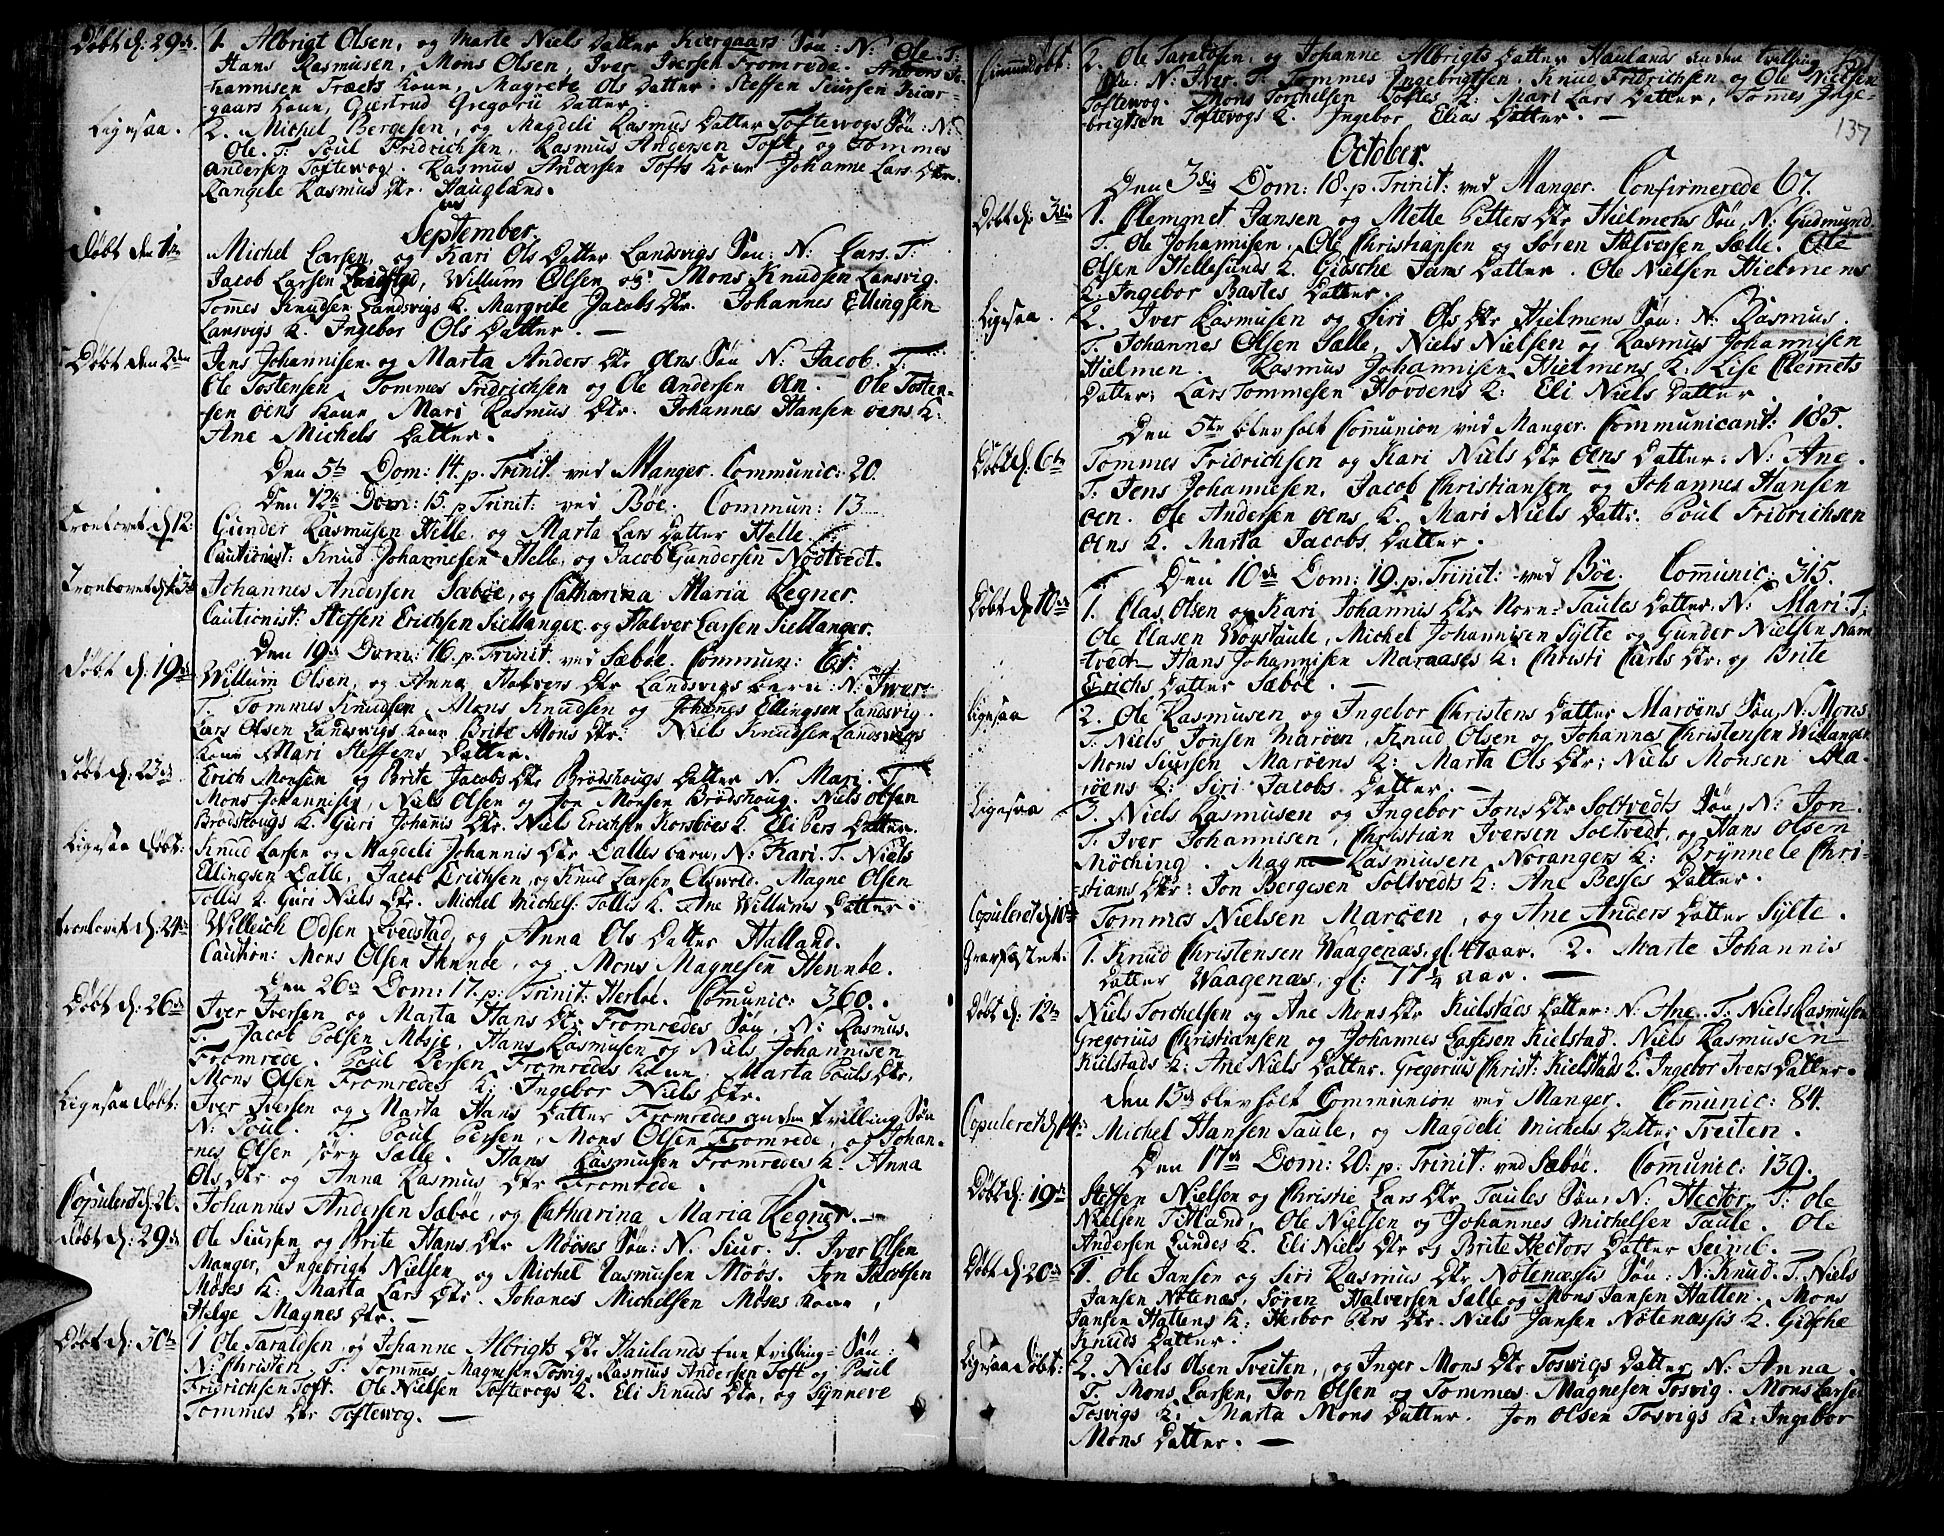 Døbt d: 29de
1. Albrigt Olsen, og Marte Niels Datter Kiergaars Søn: N: Ole. T:
Hans Rasmusen, Mons Olsen, Iver Iversen Fromrede. Anders Jo-
hannisen Træets Kone, Magrete Ols Datter. Steffen Siursen Kiær-
gaars Kone, Giertrud Gregorii Datter.
Ligesaa.
2. Michel Bergesen, og Magdeli Rasmus Datter Toftewogs Søn: N:
Ole. T: Poul Fridrichsen, Rasmus Andersen Toft, og Tommes
Andersen Toftewog. Rasmus Andersen Tofts Kone Johanne Lars Dtr.
Rangele Rasmus Dtr. Haugland.
September.
Døbt den 1te
Michel Larsen, og Kari Ols Datter Landsvigs Søn: N: Lars. T:
Jacob Larsen, Willum Olsen og Mons Knudsen Lansvig.
Tomes Knudsen Landsvigs K. Margrete Jacobs Dtr. Johannes Ellingsen
Lansvigs K. Ingebor Ols Datter. —
Døbt den 2den
Jens Johannisen og Marta Anders Dtr Øens Søn N: Jacob. T:
Ole Tostensen, Tommes Fridrichsen og Ole Andersen Øen. Ole Tosten-
sen Øens Kone, Mari Rasmus Dtr. Johannes Hansen Øens K:
Ane Michels Datter.
Den 5te Dom: 14. p. Trinit. ved Manger. Communic: 20.
Den 12te Dom: 15. p. Trinit: ved Bøe. Commun: 13.
Troelovet d. 12.
Gunder Rasmusen Helle, og Marta Lars Datter Helle.
Cautionist: Knud Johannesen Helle, og Jacob Gundersen Nødtvedt.
Troelovet d. 13de
Johannes Andersen Sæbøe, og Catharina Maria Regner.
Cautionist: Steffen Erichsen Siellanger og Halver Larsen Siellanger.
Den 19de Dom: 16. p. Trinit. ved Sæbøe. Commun: 61.
Døbt d: 19de
Willum Olsen, og Anna Halvers Dtr Landsvigs barn: N: Iver.
T. Tommes Knudsen, Mons Knudsen og Johanes Ellingsen Landsvig.
Lars Olsen Landsvigs Kone Brite Mons Dtr. Niels Knudsen Landsvigs
Kone Mari Steffens Datter.
Døbt d: 23de
Erich Monsen og Brite Jacobs Dtr Brødshougs Datter N. Mari. T:
Mons Johannisen, Niels Olsen og Jon Monsen Brødshoug. Niels Olsen
Brødshougs K. Guri Johanis Dtr. Niels Erichsen Korsbøes K. Eli Pers Datter.
Ligesaa Døbt.
Knud Larsen og Magdeli Johannis Dtr Dalles barn, N: Kari. T. Niels
Ellingsen Dalle, Jacob Erichsen, og Knud Larsen Olswold. Magne Olsen
Tollis K. Guri Niels Dtr. Michel Michels: Tollis K. Ane Willums Datter.
Troelovet d: 24de
Willich Odsen Qvedstad, og Anna Ols Datter Halland.
Caution: Mons Olsen Hennøe, og Mons Magnesen Hennøe.
Den 26de Dom: 17. p: Trinit: Herløe. Comunic: 360.
Døbt d: 26de
Iver Iversen og Marta Hans Dtr Fromredes Søn, N: Rasmus.
T. Jacob Polsen Møsje, Hans Rasmusen og Niels Johannisen
Fromrede. Poul Persen Fromredes Kone, Marta Pouls Dtr,
Mons Olsen Fromredes K: Ingebor Niels Dtr.
Ligesaa Døbt:
Iver Iversen og Marta Hans Datter Fromredes anden Tvilling Søn
N: Poul. T. Poul Persen, Mons Olsen Fromrede, og Johan-
nes Olsen sørn Sælle. Hans Rasmusen Fromredes K. Anna
Ols Dtr og Anna Rasmus Dtr Fromrede.
Copuleret d. 26.
Johannes Andersen Sæbøe, og Catharina Maria Regner. —
Døbt d: 29de
Ole Siursen og Brite Hans Dtr Møøses Søn: N. Siur. T. Iver Olsen
Manger, Ingebrigt Nielsen og Michel Rasmusen Møøs. Jon Jacobsen
Møses K: Marta Lars Dtr. Johanes Michelsen Møses Kone,
Helge Magnes Dtr. —
Døbt d: 30te
1 Ole Taraldsen, og Johanne Albrigts Dtr Haulands Ene tvilling Søn:
N: Christen. T. Tommes Magnesen Tosvig, Rasmus Andersen Toft og Poul
Fridrichsen Toft. Ole Nielsen Toftevogs K. Eli Knuds Dtr, og Synneve
Tommes Dtr Toftewog. —
137
2. Ole Taraldsen, og Johanne Albrigts Datter Haulands anden tvilling
Søn: N: Iver. T. Tommes Ingebrigtsen, Knud Fridrichsen og Ole Nielsen
Toftewog. Mons Torchelsen Toftes K: Mari Lars Datter, Tomes Inge-
brigtsen Toftevogs K. Ingebor Elias Datter. —
October.
Den 3die Dom: 18. p. Trinit: ved Manger. Confirmerede 67.
Døbt d: 3die
1. Clemmet Jansen og Mette Petters Dtr Hielmens Søn, N: Gudmund
T. Ole Johannisen, Ole Christiansen og Søren Halversen Sælle. Ole
Olsen Hellesunds K. Gidsche Jans Datter. Ole Nielsen Hielmens
K: Ingebor Bastes Datter.
Ligesaa.
2. Iver Rasmusen og Siri Ols Dtr Hielmens Søn: N: Rasmus.
T. Johannes Olsen Sælle, Niels Nielsen og Rasmus Johannisen
Hielmen. Rasmus Johannisen Hielmens K: Lise Clemets
Datter, Lars Tommesen Hovdens K: Eli Niels Datter.
Den 5te blev holt Comunion ved Manger. Communicant: 185.
Døbt d: 6te
Tommes Fridrichsen og Kari Niels Dtr Øens Datter: N: Ane.
T. Jens Johannesen, Jacob Christiansen og Johannes Hansen
Øen. Ole Andersen Øens K. Mari Niels Datt: Poul Fridrichsen
Øens K. Marta Jacobs Datter.
Den 10de Dom: 19. p. Trinit: ved Bøe. Comunic: 315.
Døbt d. 10de
1. Clas Olsen og Kari Johannis Dtr Norn: Taules Datter, N: Mari. T:
Ole Clasen Wogstaule, Michel Johannisen Sylte og Gunder Nielsen Nøre-
tvedt. Hans Johannisen Maraases K: Christi Carls Dtr, og Brite
Erichs Datter Sæbøe. —
Ligesaa
2. Ole Rasmusen og Ingebor Christens Datter Marøens Søn, N: Mons
T: Niels Jonsen Marøen, Knud Olsen og Johannes Christensen Willanger
Mons Siursen Marøens K: Marta Ols Dtr; Niels Monsen Ma-
røens K: Siri Jacobs Datter. —
Ligesaa
3. Niels Rasmusen og Ingebor Jons Dtr Soltvedts Søn, N: Jon.
T. Iver Johannisen, Christian Iversen Soltvedt, og Hans Olsen
Møching. Magne Rasmusen Norangers K: Brynnele Chri-
stians Dtr: Jon Bergesen Soltvedts K: Ane Besses Datter.
Copuleret d. 10de
Tommes Nielsen Marøen, og Ane Anders Datter Sylte.
Gravfæstet:
1. Knud Christensen Waagenæs, gl. 47 aar. 2. Marte Johannis
Datter Waagenæs, gl: 77¼ aar. —
Døbt d: 12te
Niels Torchelsen og Ane Mons Dtr Kielstads Datter: N: Ane. T. Niels Rasmusen
Gregorius Christiansen og Johannes Lassesen Kielstad. Niels Rasmusen
Kielstads K: Ane Niels Datter. Gregorius Christ: Kielstads K. Ingebor Ivers Datter.
Den 13de blev holt Communion ved Manger. Comunic: 84.
Copuleret d. 14de
Michel Hansen Taule, og Magdeli Michels Datter Treiten.
Den 17de Dom: 20. p. Trinit: ved Sæbøe. Comunic: 139.
Døbt d: 19de
Steffen Nielsen og Christie Lars Dtr Taules Søn, N: Hector. T: Ole
Nielsen Titland, Ole Nielsen og Johannes Michelsen Taule. Ole
Andersen Lundes K. Eli Niels Dtr og Brite Hectors Datter Seim. —
Døbt d: 20de
1. Ole Jansen og Siri Rasmus Dtr Notenæsis Søn: N: Knud. T. Niels
Jansen Notenæs, Søren Halversen Sælle og Mons Jansen Hatten. Mons
Jansen Hattens K: Herbor Pers Dtr. Niels Jansen Notenæssis K. Gidsche
Knuds Datter.
Ligesaa Døbt:
2. Niels Olsen Tveiten, og Inger Mons Dtr Toswigs Datter, N: Anna.
T. Mons Larsen, Jon Olsen og Tommes Magnesen Tosvig. Mons Larsen
Tosvigs K: Marta Mons Datter. Jon Olsen Tosvigs K: Ingebor
Mons Datter. —